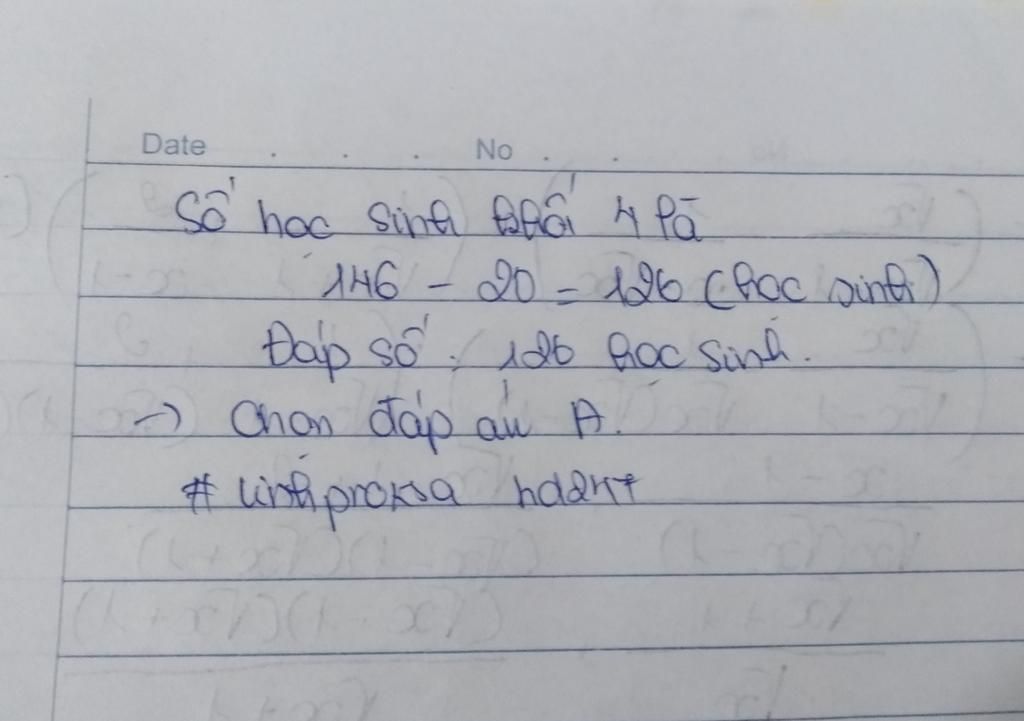 Date . . . . No . .
Số học sinh khối 4 là
146 - 20 = 126 (học sinh)
Đáp số : 126 học sinh.
-> Chọn đáp án A.
#